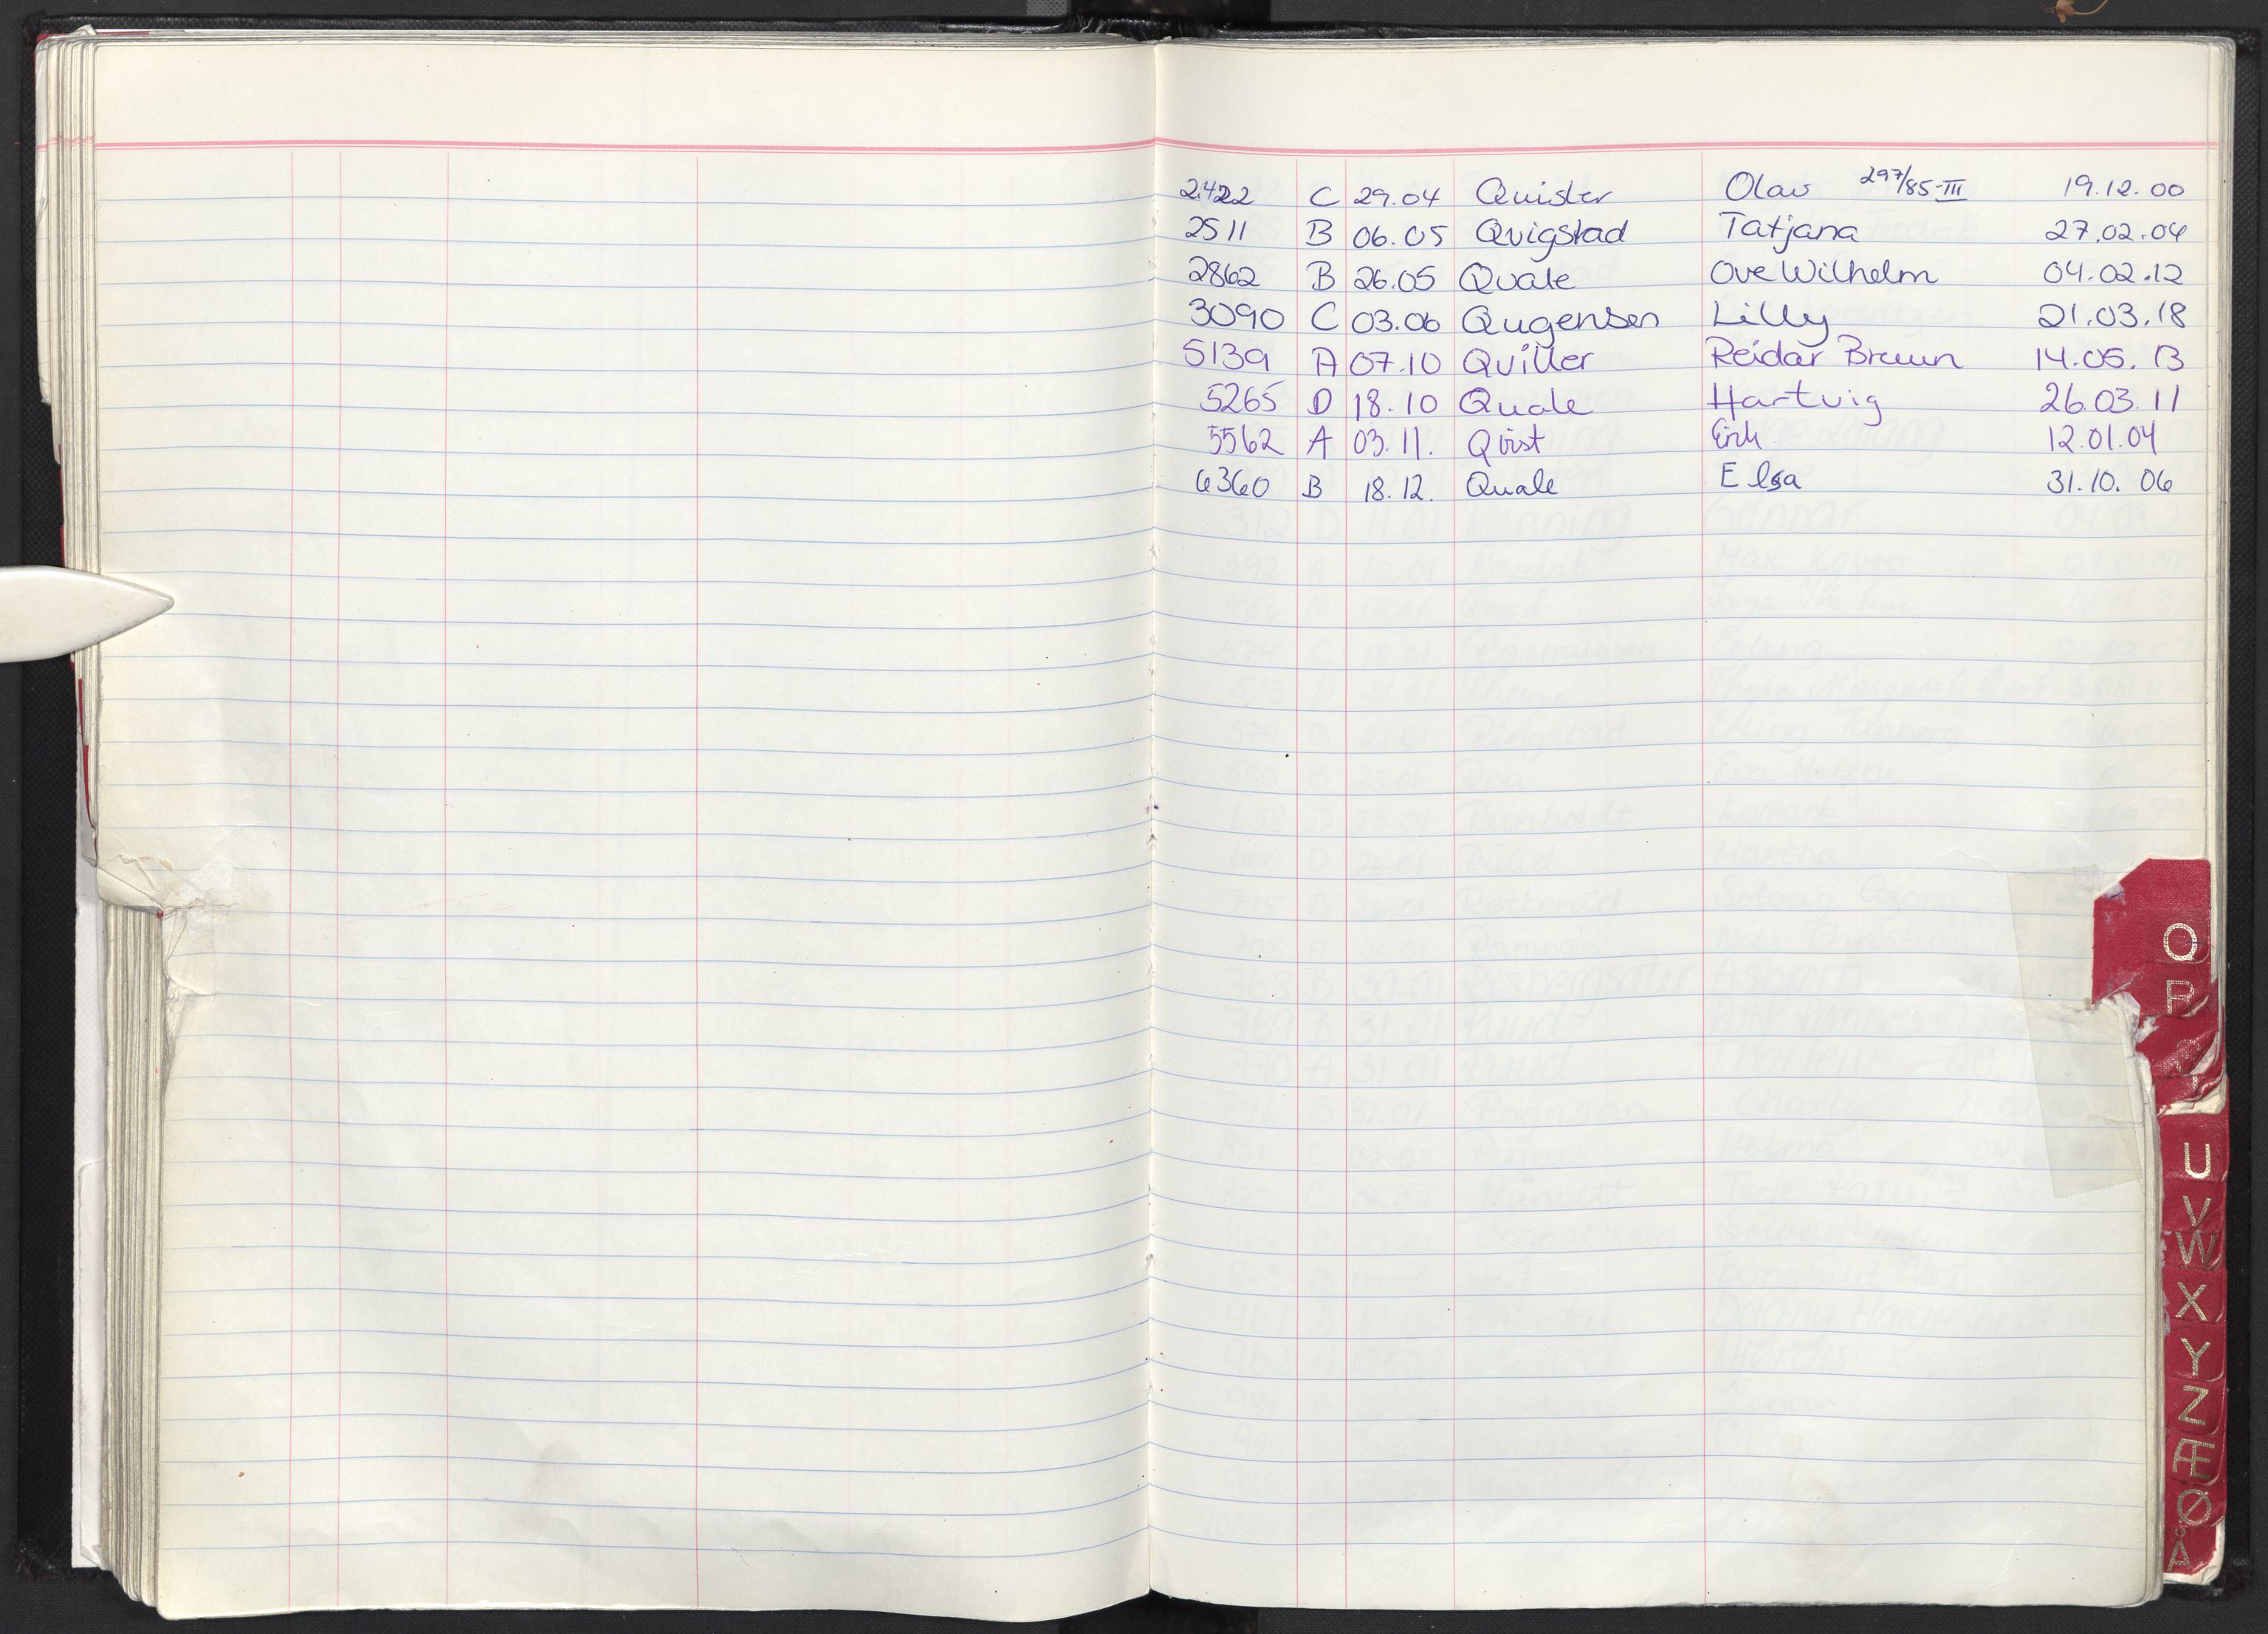 2422 C 29.04 Quisler Olav 297/85-III 19.12.00
2511 B 06.05 Qvigstad Tatjana 27.02.04
2862 B 26.05 Qvale Ove Wilhelm 04.02.12
3090 C 03.06 Qugensen Lilly 21.03.18
5139 A 07.10 Qviller Reidar Bruun 14.05.13
5265 D 18.10 Quale Hartvig 26.03.11
5562 A 03.11. Qvist Erik 12.01.04
6360 B 18.12. Quale Elsa 31.10.06
Q
R
U
V
W
X
Y
Z
Æ
Ø
Å